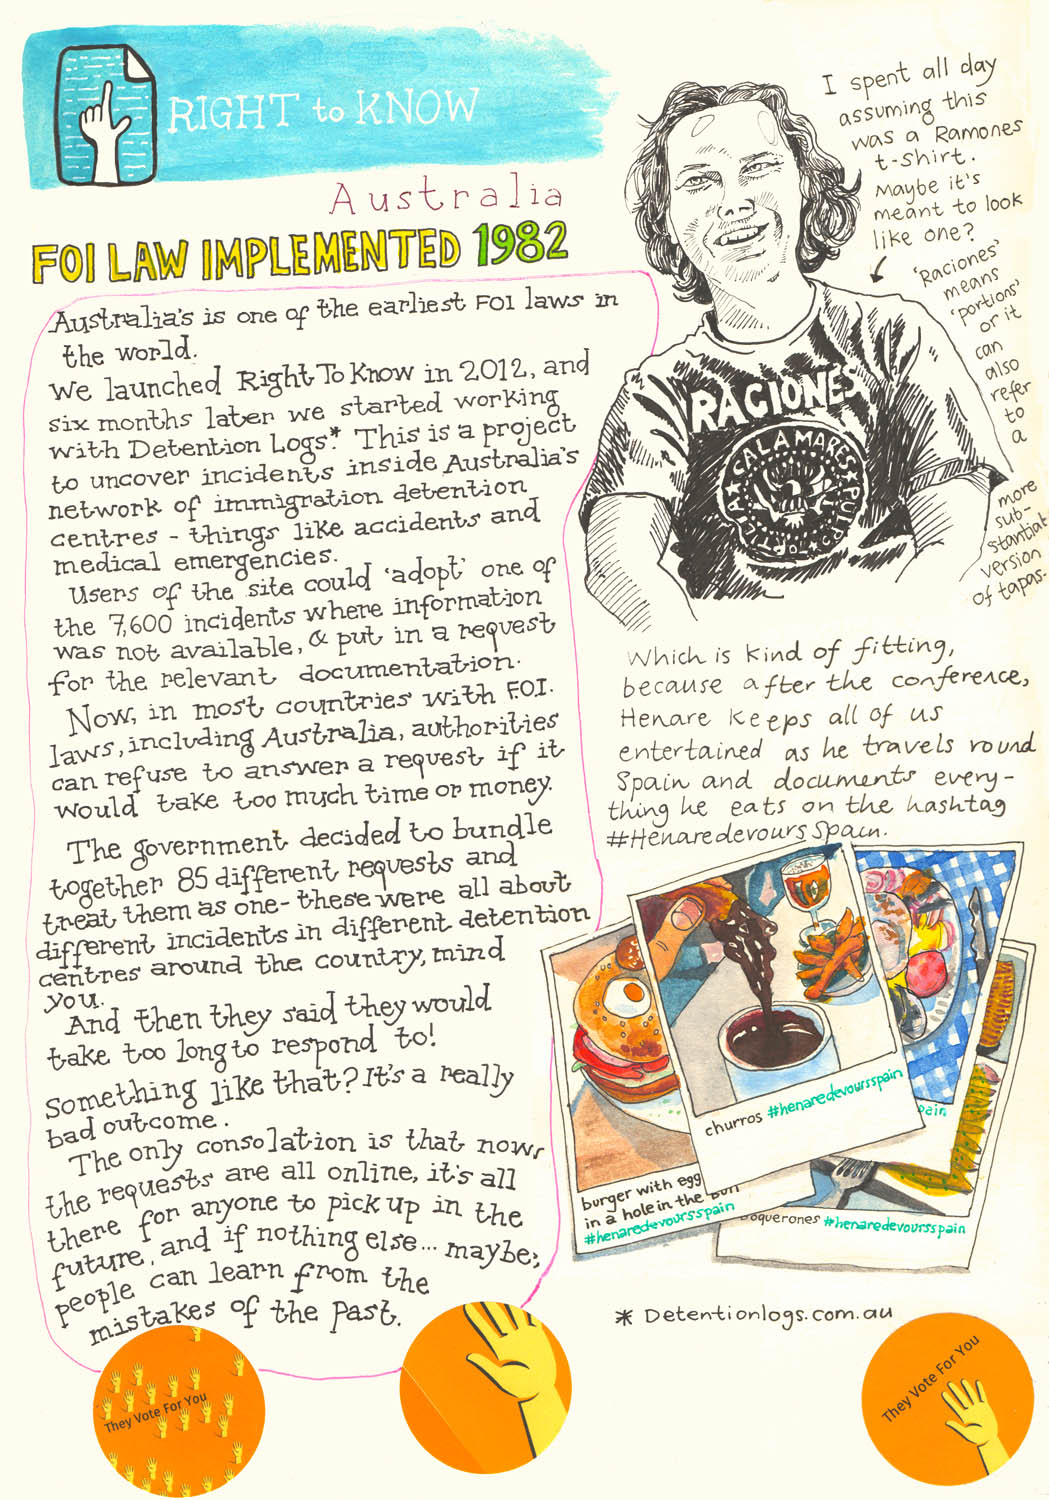 RIGHT to KNOW
Australia
FOI LAW IMPLEMENTED 1982
Australia's is one of the earliest FOI laws in
the world.
We launched Right To Know in 2012, and
six months later we started working
with Detention Logs.* This is a project
to uncover incidents inside Australia's
network of immigration detention
centres - things like accidents and
medical emergencies.
Users of the site could 'adopt' one of
the 7,600 incidents where information
was not available, & put in a request
for the relevant documentation.
Now, in most countries with F.O.I.
laws, including Australia, authorities
can refuse to answer a request if it
would take too much time or money.
The government decided to bundle
together 85 different requests and
treat them as one- these were all about
different incidents in different detention
centres around the country, mind
you.
And then they said they would
take too long to respond to!
Something like that? It's a really
bad outcome.
The only consolation is that now
the requests are all online, it's all
there for anyone to pick up in the
future, and if nothing else... maybe,
people can learn from the
mistakes of the past.
I spent all day
assuming this
was a Ramones
t-shirt.
Maybe it's
meant to look
like one?
'Raciones'
means
'portions'
or it
can
also
refer
to
a
more
sub-
stantial
version
of tapas.
RACIONES
CALAMARES
Which is kind of fitting,
because after the conference,
Henare keeps all of us
entertained as he travels round
Spain and documents every-
thing he eats on the hashtag
#HenaredevoursSpain.
churros #henaredevoursspain
pain
burger with egg
in a hole in the bun
#henaredevoursspain
boquerones #henaredevoursspain
* Detentionlogs.com.au
They Vote For You
They Vote For You